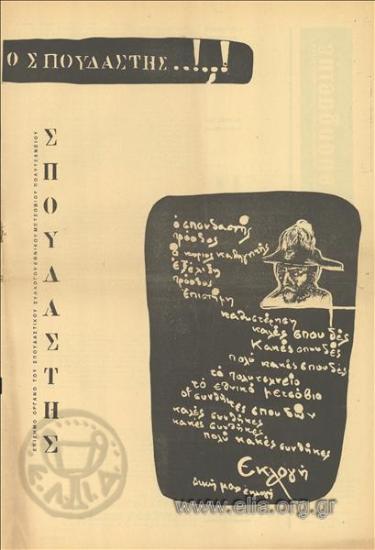 Ο ΣΠΟΥΔΑΣΤΗΣ...!,!
ΣΠΟΥΔΑΣΤΗΣ
ΕΠΙΣΗΜΟ ΟΡΓΑΝΟ ΤΟΥ ΣΠΟΥΔΑΣΤΙΚΟΥ ΣΥΛΛΟΓΟΥ ΕΘΝΙΚΟΥ ΜΕΤΣΟΒΙΟΥ ΠΟΛΥΤΕΧΝΕΙΟΥ
ὁ σπουδαστής
πρόοδος
ὁ κύριος καθηγητής
ἐξέλιξη
πρόοδος
ἐπιστήμη
καθυστέρηση
καλές σπουδές
κακές σπουδές
πολύ κακές σπουδές
τό πολυτεχνεῖο
τό ἐθνικό μετσόβιο
οἱ συνθῆκες σπουδῶν
καλές συνθῆκες
κακές συνθῆκες
πολύ κακές συνθῆκες
Ἐκλογή
δική μας
Ε.Λ.Ι.Α
www.elia.org.gr